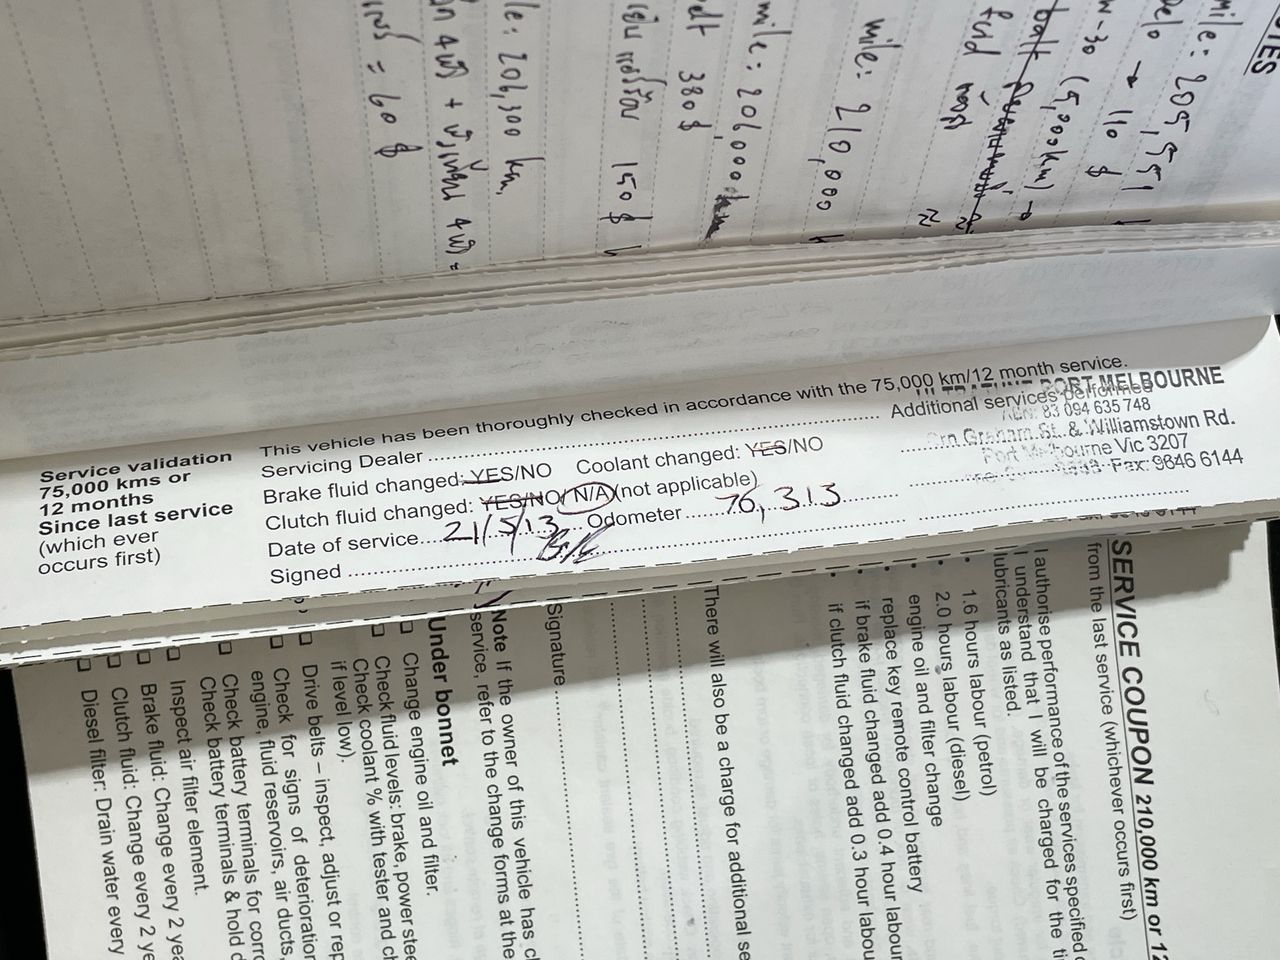 OTES
mile: 205,551
→ 110 $
w-30 (5,000km) →
mile: 210,000 k
mile: 206,000
380 $
150 $
le: 206,300 km,
= 60 $
Service validation
75,000 kms or
12 months
Since last service
(which ever
occurs first)
This vehicle has been thoroughly checked in accordance with the 75,000 km/12 month service.
Servicing Dealer
Additional services performed
Brake fluid changed: YES/NO Coolant changed: YES/NO
Clutch fluid changed: YES/NO/ N/A (not applicable)
Date of service 21/5/13 Odometer 76,313
Signed
PORT MELBOURNE
83 094 635 748
St. & Williamstown Rd.
Vic 3207
Fax: 9646 6144
SERVICE COUPON 210,000 km or 12
from the last service (whichever occurs first)
I authorise performance of the services specified
I understand that I will be charged for the ti
lubricants as listed.
• 1.6 hours labour (petrol)
• 2.0 hours labour (diesel)
engine oil and filter change
• replace key remote control battery
• if brake fluid changed add 0.4 hour labour
• if clutch fluid changed add 0.3 hour labou
There will also be a charge for additional se
Signature
Note If the owner of this vehicle has cl
service, refer to the change forms at the
Under bonnet
Change engine oil and filter.
Check fluid levels: brake, power stee
Check coolant % with tester and ch
if level low).
Drive belts – inspect, adjust or rep
Check for signs of deterioration
engine, fluid reservoirs, air ducts,
Check battery terminals for corro
Check battery terminals & hold d
Inspect air filter element.
Brake fluid: Change every 2 yea
Clutch fluid: Change every 2 ye
Diesel filter: Drain water every